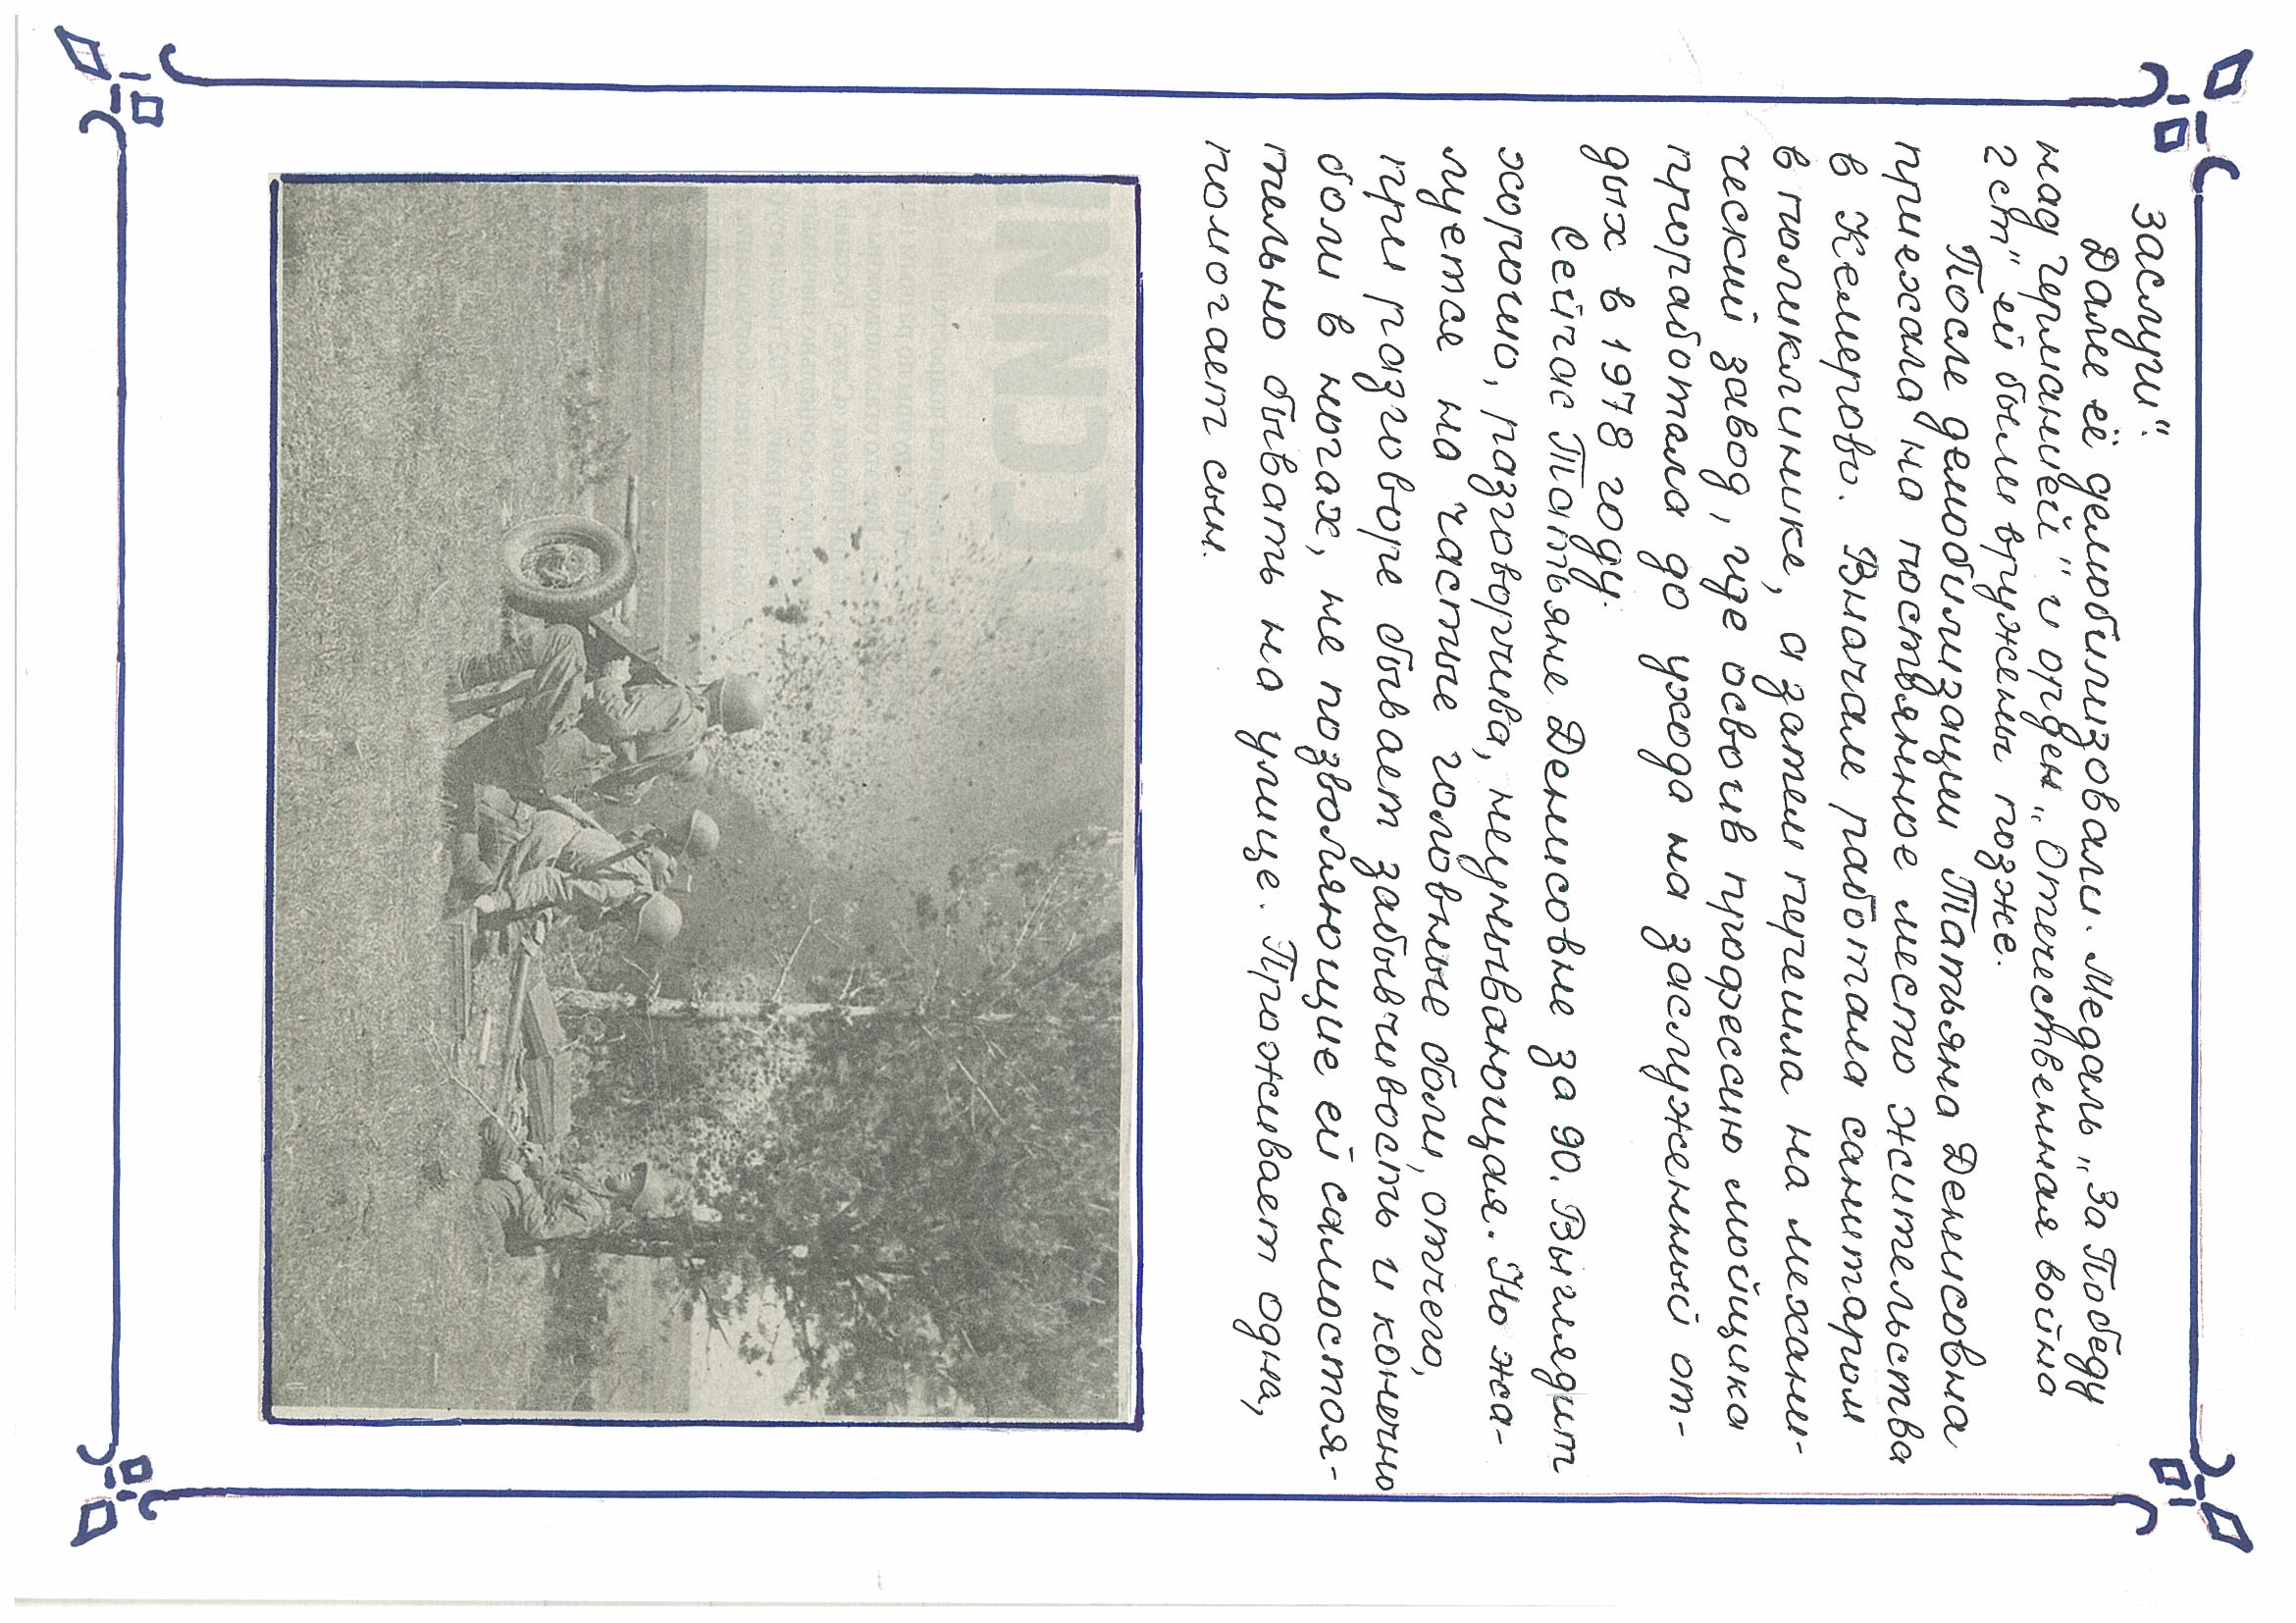 заслуги".
Далее её демобилизовали. Медаль „За Победу
над Германией" и орден „Отечественная война
2 ст" ей были вручены позже.
После демобилизации Татьяна Денисовна
приехала на постоянное место жительства
в Кемерово. Вначале работала санитаром
в поликлинике, а затем перешла на механи-
ческий завод, где освоив профессию мойщика
проработала до ухода на заслуженный от-
дых в 1978 году.
Сейчас Татьяне Денисовне за 90. Выглядит
хорошо, разговорчива, неунывающая. Но жа-
луется на частые головные боли, отчего,
при разговоре бывает забывчивость и конечно
боли в ногах, не позволяющие ей самостоя-
тельно бывать на улице. Проживает одна,
помогает сын.